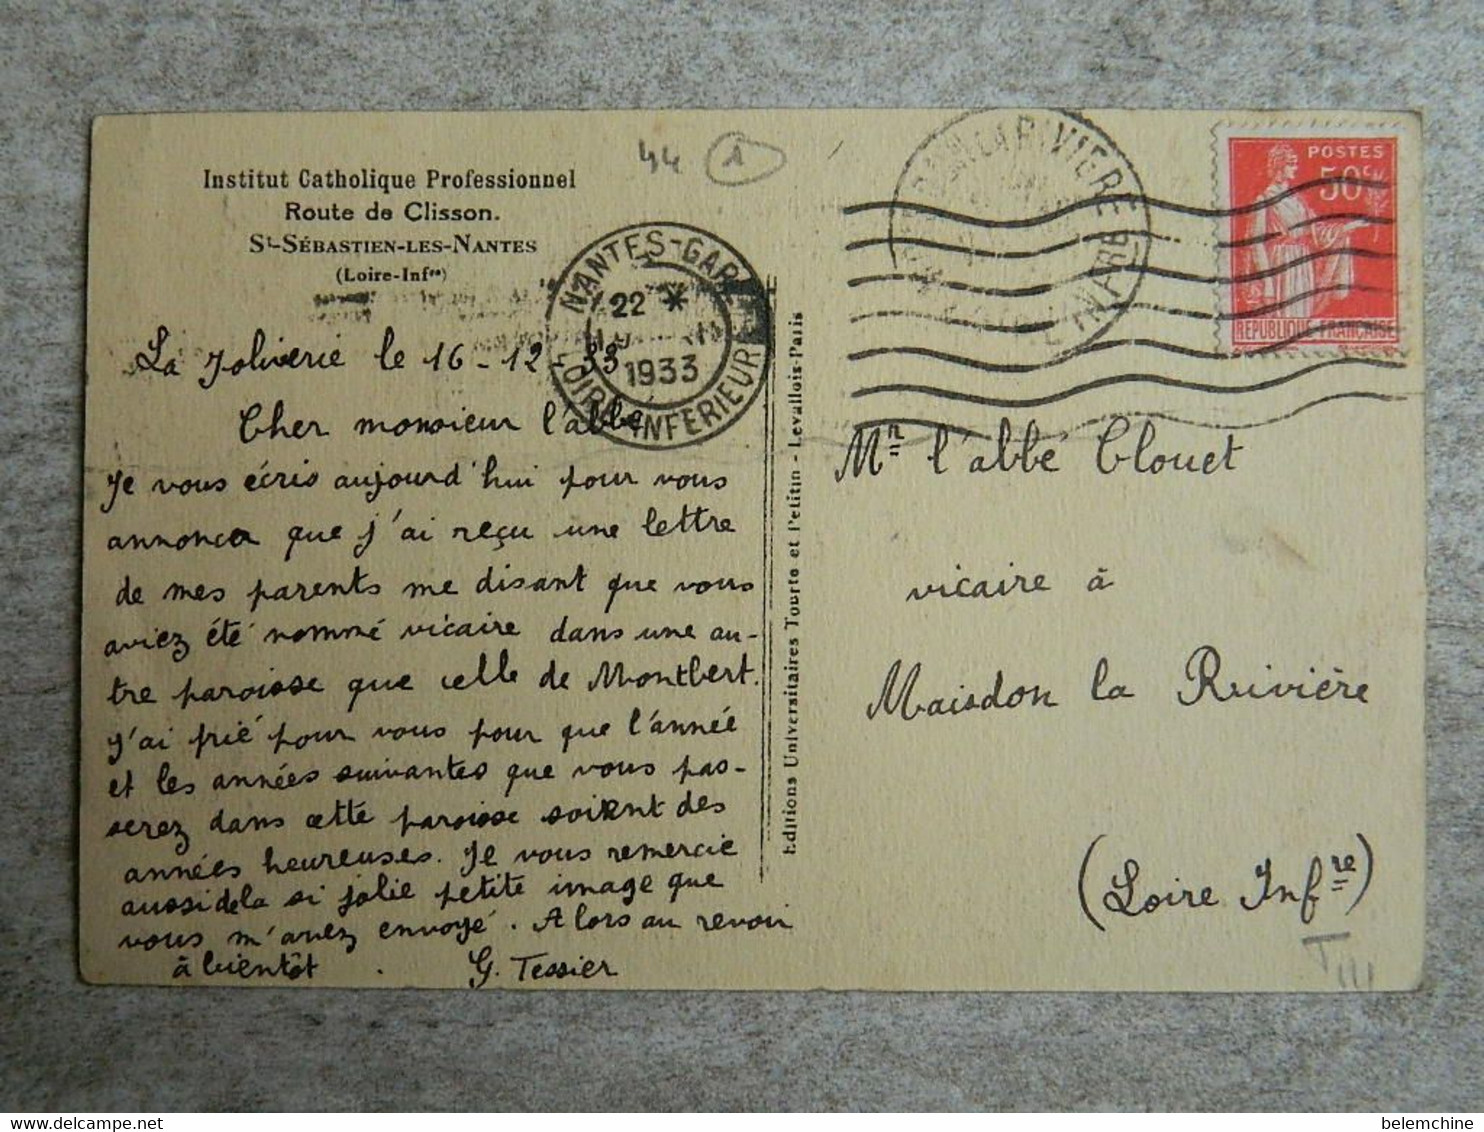 44 1
Institut Catholique Professionnel
Route de Clisson.
St-Sébastien-les-Nantes
(Loire-Infre)
NANTES-GARE
22 *
1933
LOIRE-INFERIEURE
La Joliverie le 16-12-33
Cher monsieur l'abbé
Je vous écris aujourd'hui pour vous
annoncer que j'ai reçu une lettre
de mes parents me disant que vous
aviez été nommé vicaire dans une au-
tre paroisse que celle de Montbert.
J'ai prié pour vous pour que l'année
et les années suivantes que vous pas-
serez dans cette paroisse soient des
années heureuses. Je vous remercie
aussi de la si jolie petite image que
vous m'avez envoyé. Alors au revoir
à bientôt. G. Tessier
Editions Universitaires Tourte et Petitin - Levallois-Paris
LA RIVIERE
INFRE
POSTES
50c
REPUBLIQUE FRANÇAISE
Mr l'abbé Clouet
vicaire à
Maisdon la Rivière
(Loire Infre)
T III
belemchine